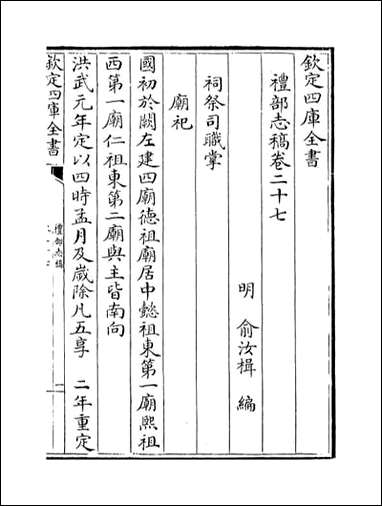 欽定四庫全書
禮部志稿卷二十七
明 俞汝楫 編
祠祭司職掌
廟祀
國初於闕左建四廟德祖廟居中懿祖東第一廟熙祖
西第一廟仁祖東第二廟與主皆南向
洪武元年定以四時孟月及歲除凡五享 二年重定
欽定四庫全書
禮部志稿